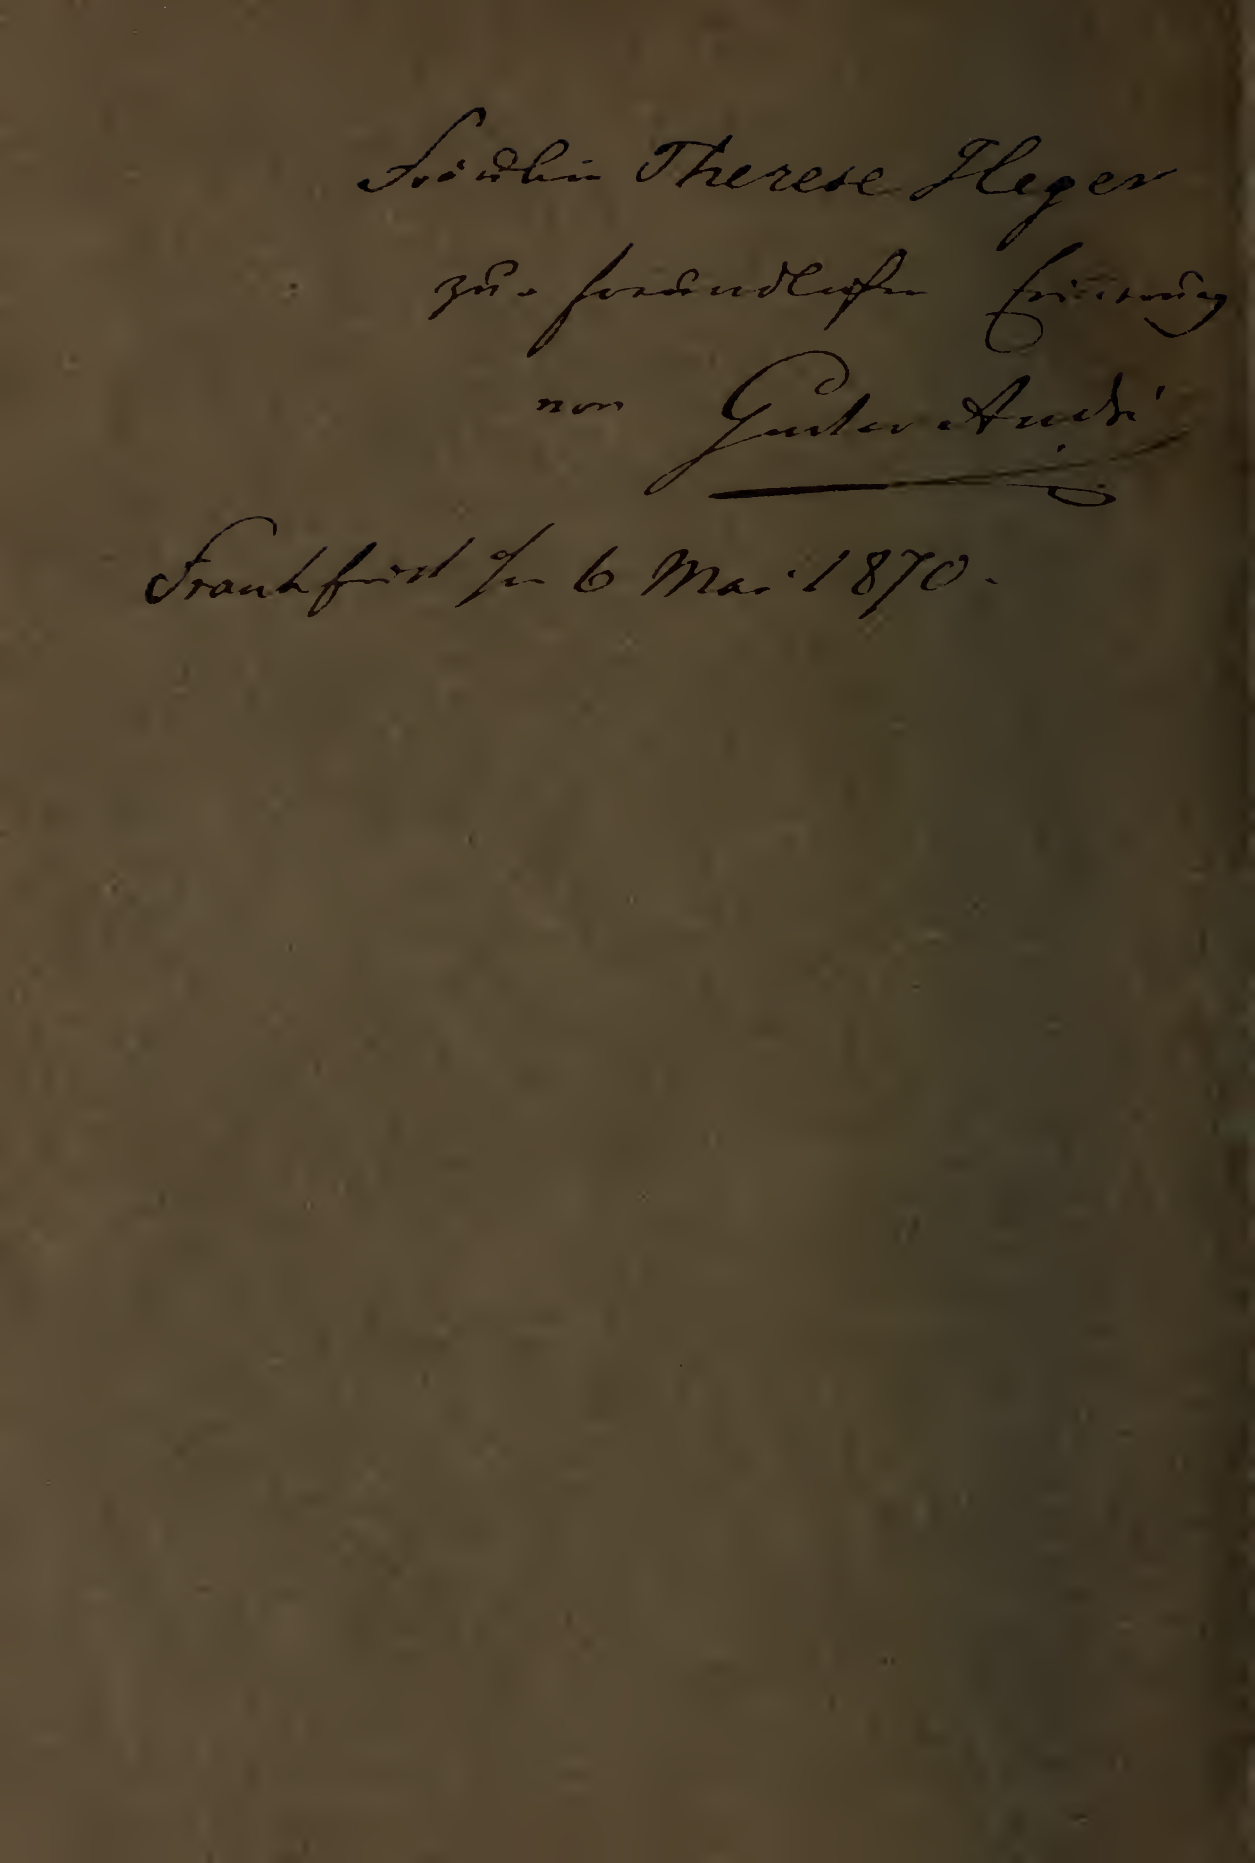 Fräulein Therese Heger
zur freundlichen Erinnerung
von Gustav André
Frankfurt 6 Mai 1870.